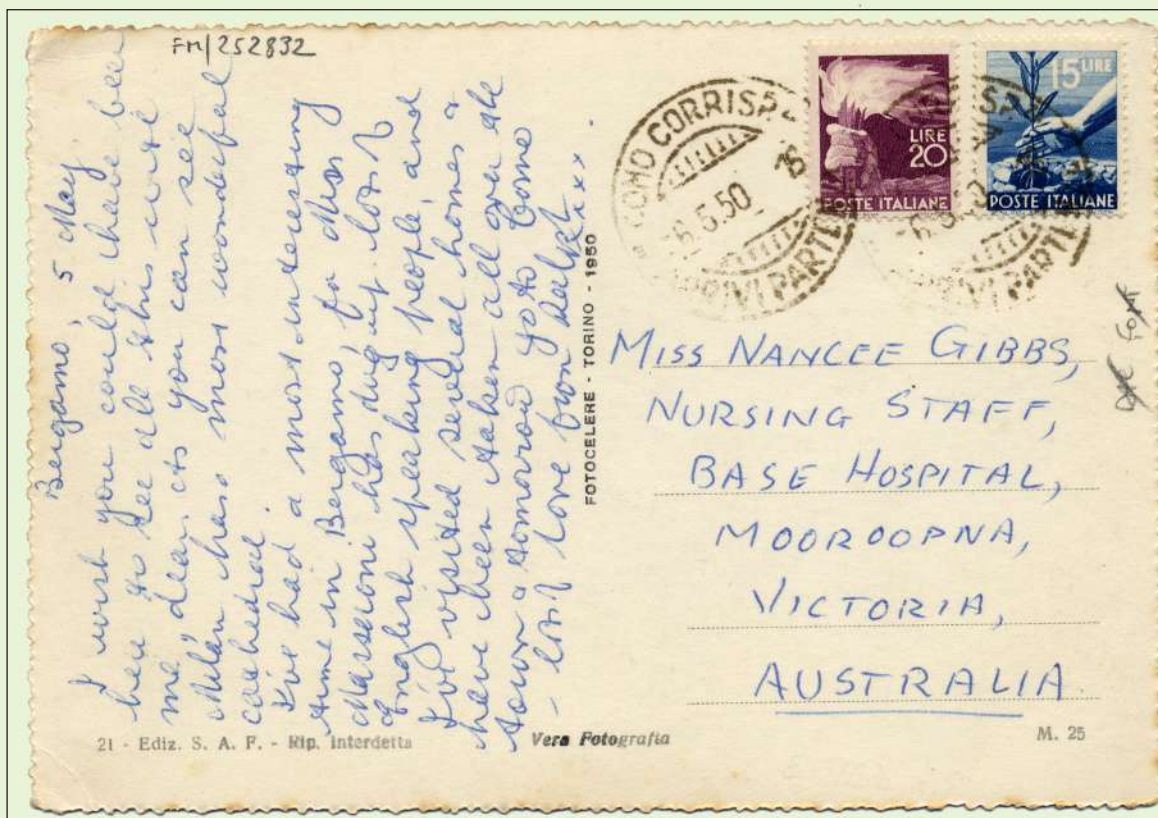 FM/252832
Bergamo, 5 May
I wish you could have been
here to see all this with
me, dear. As you can see
Milan has a most wonderful
cathedral.
I've had a most interesting
time in Bergamo, for Miss
Masseroni has dug up lots of
English speaking people, and
I've visited several homes &
have been taken all over the
town & tomorrow go to Como
- lots love from xxx.
FOTOCELERE - TORINO - 1950
COMO CORRISP
6.5.50 16
ARRIVI PARTENZE
LIRE
20
POSTE ITALIANE
15 LIRE
POSTE ITALIANE
MISS NANCEE GIBBS,
NURSING STAFF,
BASE HOSPITAL,
MOOROOPNA,
VICTORIA,
AUSTRALIA
21 - Ediz. S. A. F. - Rip. Interdetta
Vera Fotografia
M. 25